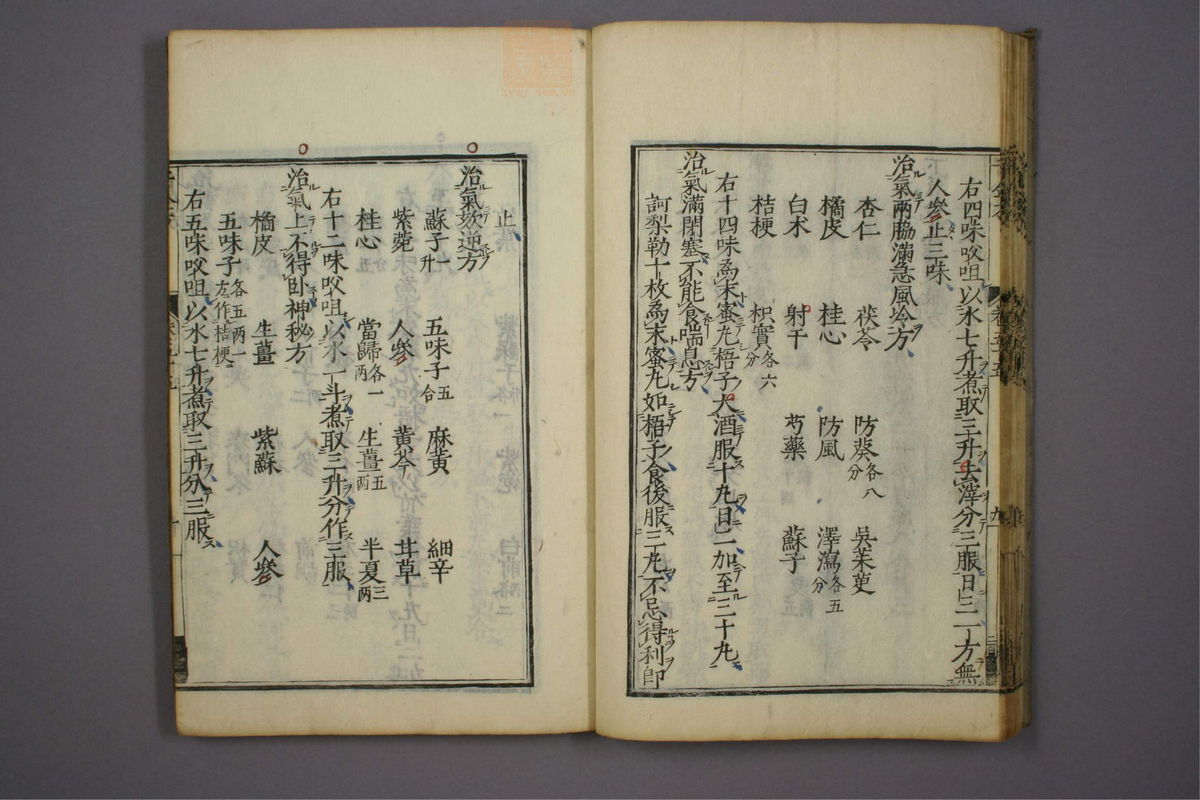 右四味㕮咀以水七升煮取三升去滓分三服日三一方無
人參止三味
治氣兩脇滿急風冷方
杏仁 茯苓 防葵各八分 吳茱萸
橘皮 桂心 防風 澤瀉各五分
白术 射干 芍藥 蘇子
桔梗 枳實各六分
右十四味爲末蜜丸梧子大酒服十丸日二加至三十丸
治氣滿閉塞不能食喘息方
訶梨勒十枚爲末蜜丸如梧子食後服三丸不忌得利卽
止
治氣欬逆方
蘇子一升 五味子五合 麻黃 細辛
紫菀 人參 黃芩 甘草
桂心 當歸各一兩 生薑五兩 半夏三兩
右十二味㕮咀以水一斗煮取三升分作三服
治氣上不得臥神秘方
橘皮 生薑 紫蘇 人參
五味子各五兩一方作桔梗
右五味㕮咀以水七升煮取三升分三服